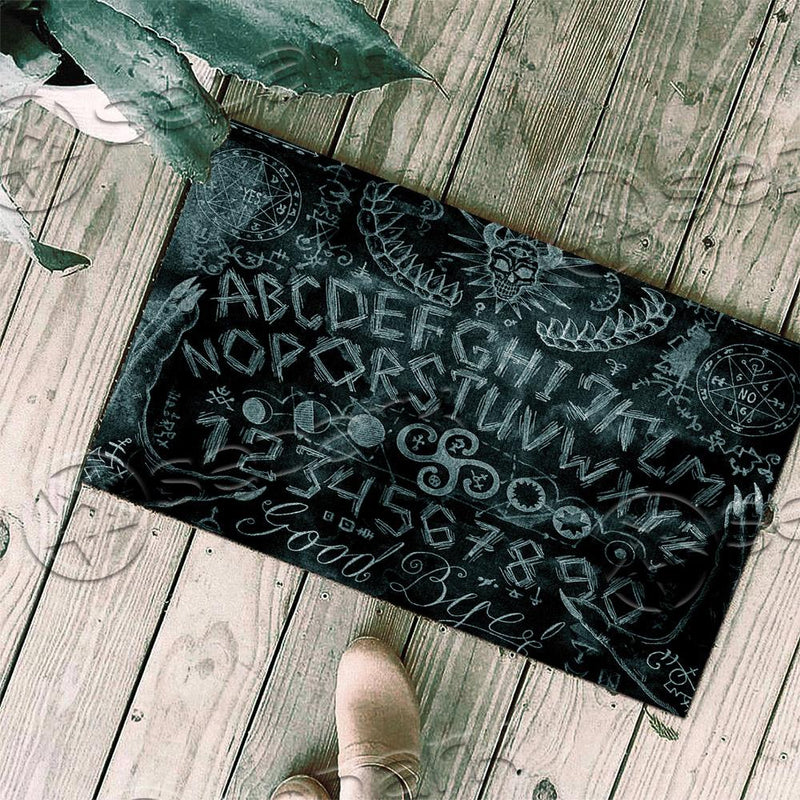 YES
ABCDEFGHIJKLM
NO
NOPQRSTUVWXYZ
1234567890
Good Bye!